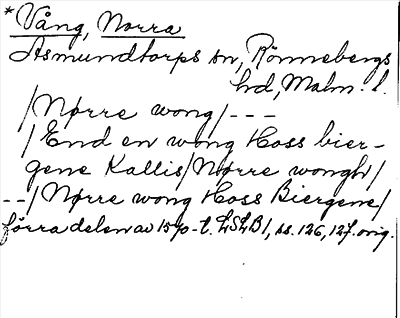 *Vång, Norra
Asmundtorps sn, Rönnebergs
hd, Malm. l.
/Nørre wong/ - - -
/End en wong Hoss bier-
gene Kallis/Nørre wongh/
- - /Nørre wong Hoss Biergene/
förra delen av 1570-t. LSLB1, ss. 126, 127. orig.